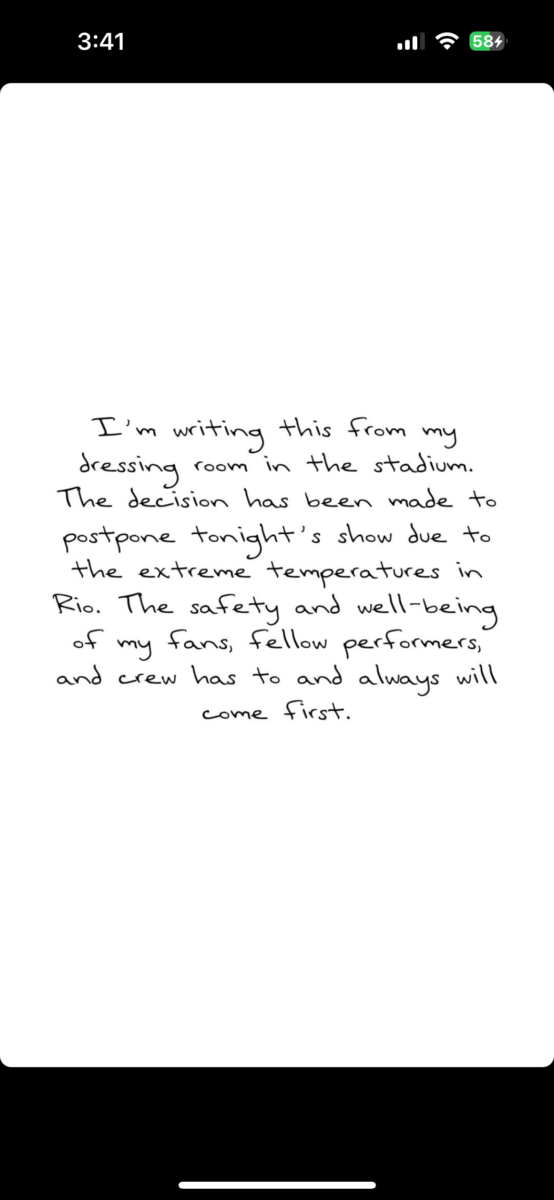 3:41
58
I'm writing this from my
dressing room in the stadium.
The decision has been made to
postpone tonight's show due to
the extreme temperatures in
Rio. The safety and well-being
of my fans, fellow performers,
and crew has to and always will
come first.